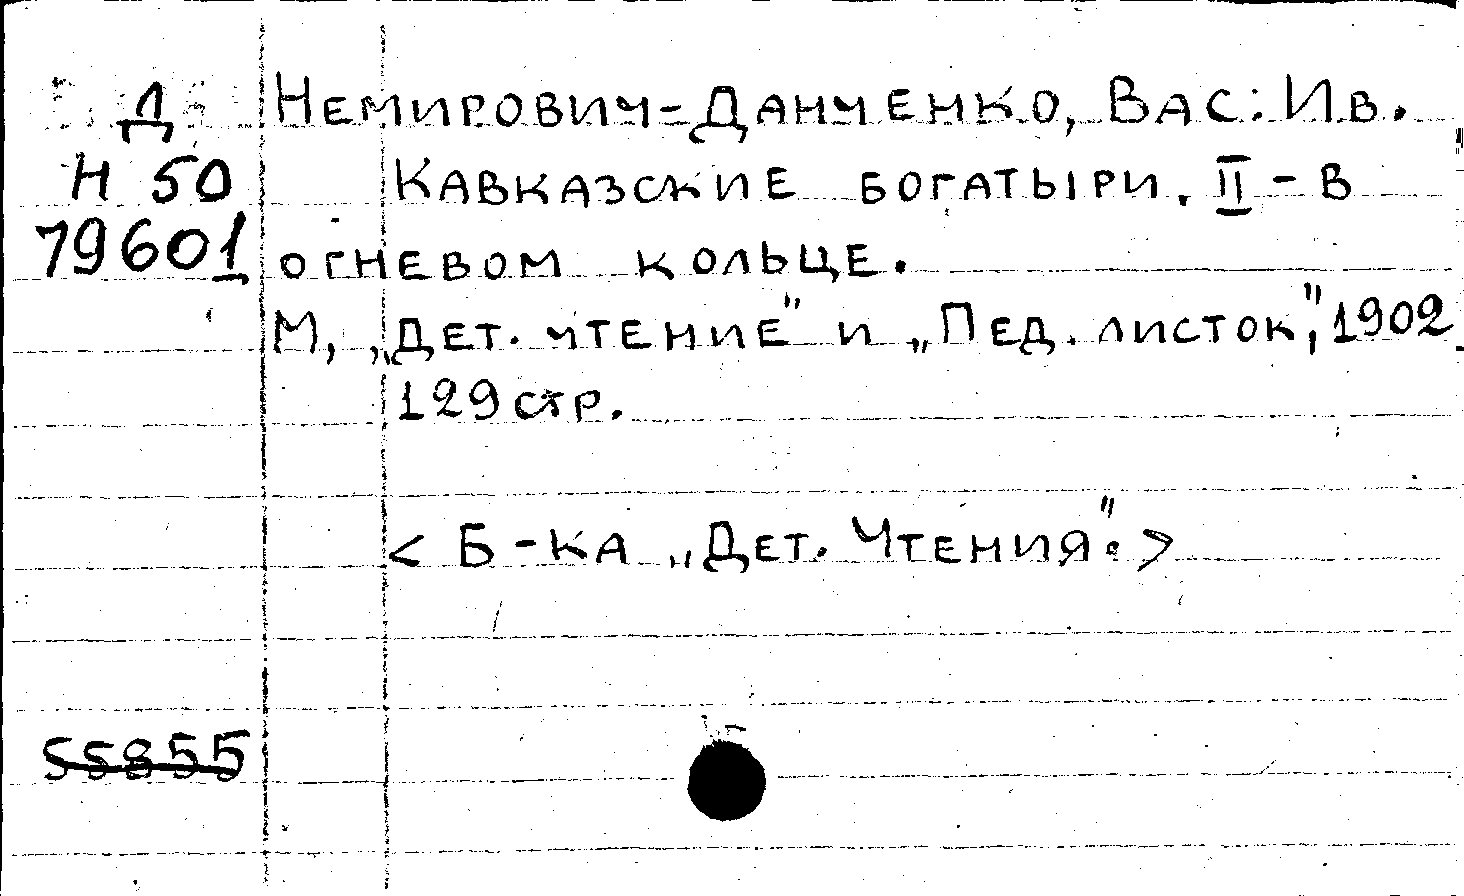 Д Немирович-Данченко, Вас. Ив.
Н 50 Кавказские богатыри. II - в
79601 огневом кольце.
М, „Дет. чтение" и „Пед. листок", 1902
129 стр.
< Б-ка „Дет. Чтения". >
55855